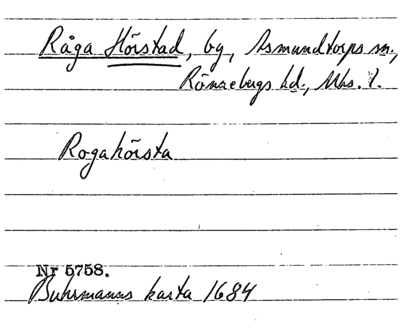 Råga Hörstad, by, Asmundtorps sn.,
Rönnebergs hd., Mhs. l.
Rogahörsta
Nr 5758.
Buhrmanns karta 1684